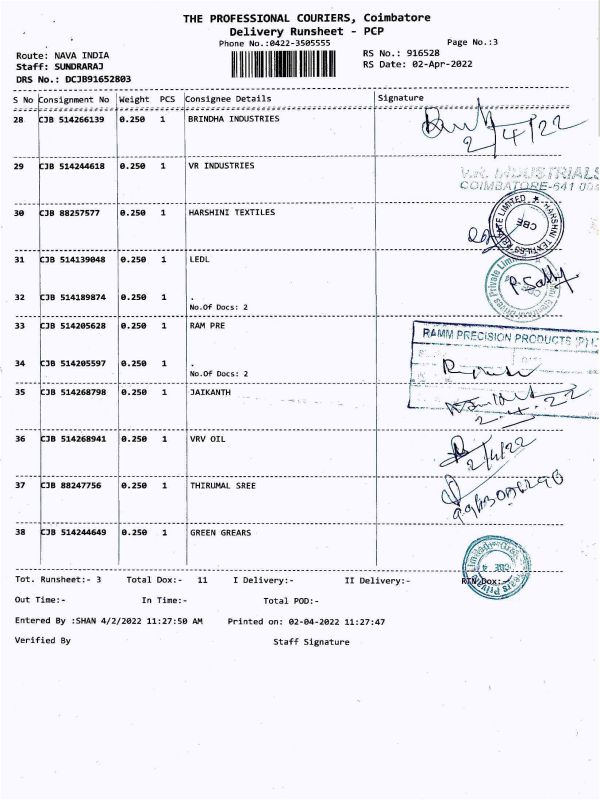 THE PROFESSIONAL COURIERS, Coimbatore
Delivery Runsheet - PCP
Phone No.:0422-3505555
Page No.:3
Route: NAVA INDIA
RS No.: 916528
Staff: SUNDRARAJ
RS Date: 02-Apr-2022
DRS No.: DCJB91652803
S No Consignment No Weight PCS Consignee Details Signature
28 CJB 514266139 0.250 1 BRINDHA INDUSTRIES
2/4/22
29 CJB 514244618 0.250 1 VR INDUSTRIES
V.R. INDUSTRIALS
COIMBATORE-641
30 CJB 88257577 0.250 1 HARSHINI TEXTILES
HARSHINI TEXTILES PRIVATE LIMITED
CBE
31 CJB 514139048 0.250 1 LEDL
Private Limited
32 CJB 514189874 0.250 1 .
No.Of Docs: 2
33 CJB 514205628 0.250 1 RAM PRE
RAMM PRECISION PRODUCTS (P)
34 CJB 514205597 0.250 1 .
No.Of Docs: 2
35 CJB 514268798 0.250 1 JAIKANTH
36 CJB 514268941 0.250 1 VRV OIL
2/4/22
37 CJB 88247756 0.250 1 THIRUMAL SREE
38 CJB 514244649 0.250 1 GREEN GREARS
Tot. Runsheet:- 3 Total Dox:- 11 I Delivery:- II Delivery:- RTN Dox:-
Out Time:- In Time:- Total POD:-
Entered By :SHAN 4/2/2022 11:27:50 AM Printed on: 02-04-2022 11:27:47
Verified By Staff Signature